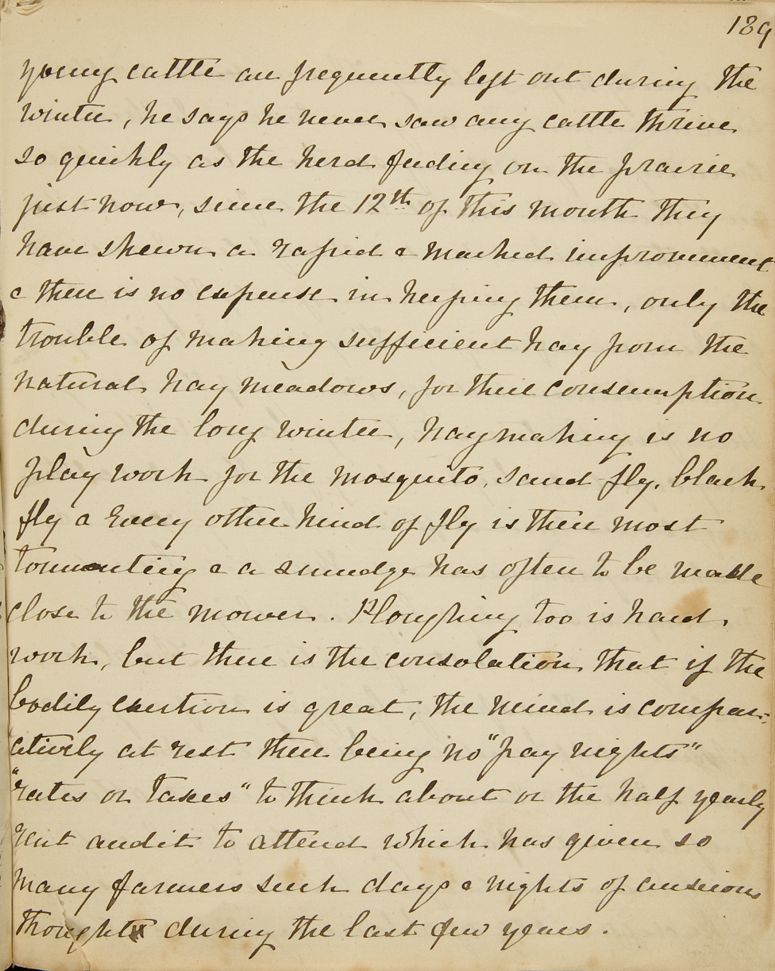 189
young cattle are frequently left out during the
winter, he says he never saw any cattle thrive
so quickly as the herd feeding on the prairie
just now, since the 12th of this month they
have shewn a rapid & marked improvement
& there is no expense in keeping them, only the
trouble of making sufficient hay from the
natural hay meadows, for their consumption
during the long winter, haymaking is no
play work for the mosquito, sand fly, black
fly & every other kind of fly is then most
tormenting & a smudge has often to be made
close to the mower. Ploughing too is hard
work, but there is the consolation that if the
bodily exertion is great, the mind is compar-
atively at rest there being no "pay nights"
"rates or taxes" to think about or the half yearly
rent audit to attend which has given so
many farmers such days & nights of anxious
thought during the last few years.